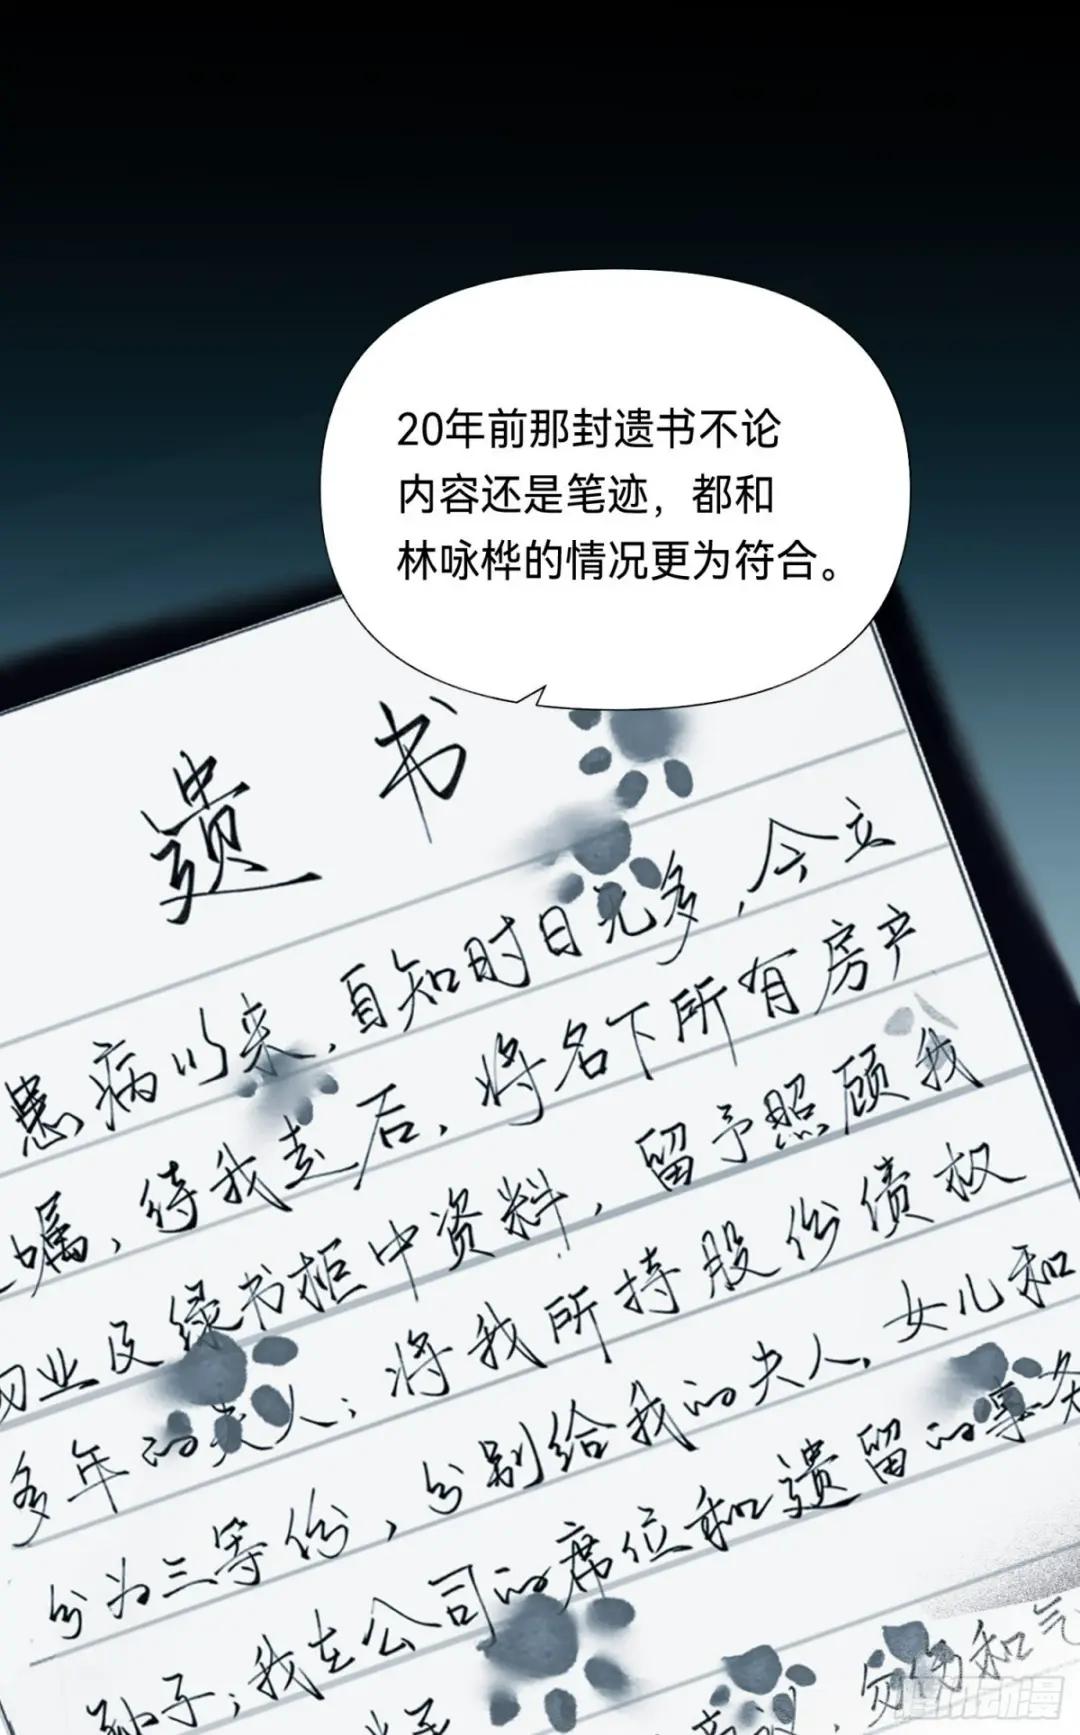 20年前那封遗书不论
内容还是笔迹，都和
林咏桦的情况更为符合。
遗书
患病以来，自知时日无多，今立
嘱，待我走后，将名下所有房产
物业及绿书柜中资料，留予照顾我
多年的人；将我所持股份债权
分为三等份，分别给我的夫人、女儿和
孙子；我在公司的席位和遗留的事务
和气
腾讯动漫